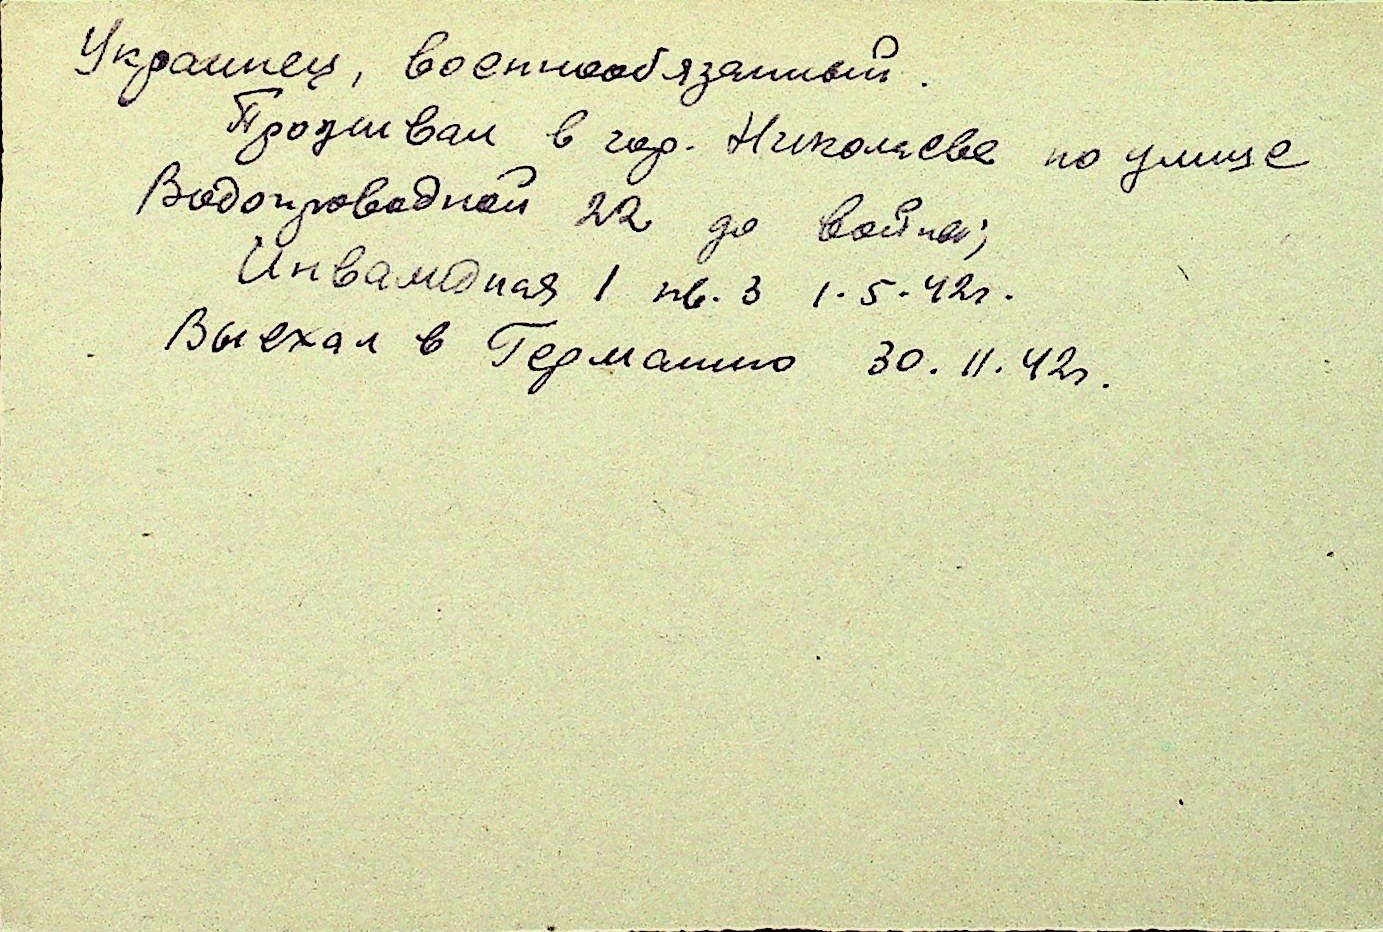 Украинец, военнообязанный.
Проживал в гор. Николаеве по улице
Водопроводной 22 до войны;
Инвалидная 1 кв. 3 1.5.42г.
Выехал в Германию 30.11.42г.